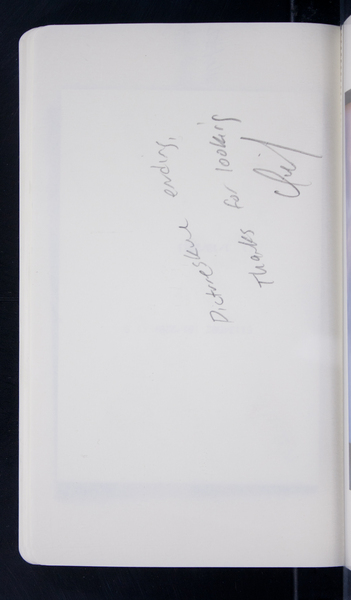 Pictureskue ending,
Thanks for looking